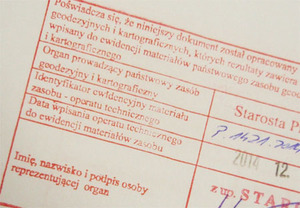 Poświadcza się, że niniejszy dokument został opracowany
geodezyjnych i kartograficznych, których rezultaty zawiera
wpisany do ewidencji materiałów państwowego zasobu geod
i kartograficznego
Organ prowadzący państwowy zasób
geodezyjny i kartograficzny
Starosta P
Identyfikator ewidencyjny materiału
zasobu - operatu technicznego
Data wpisania operatu technicznego
do ewidencji materiałów zasobu
2014 12
Imię, nazwisko i podpis osoby
reprezentującej organ
z up. STAR